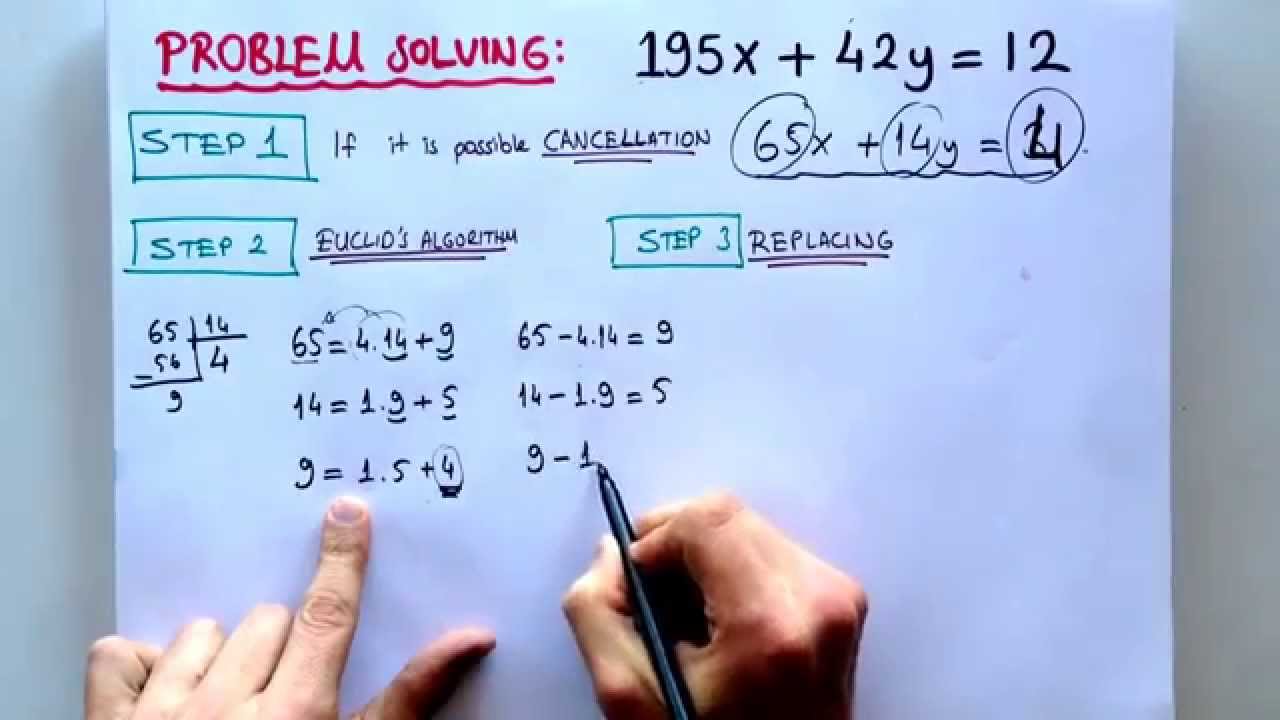 PROBLEM SOLVING: 195x + 42y = 12
STEP 1 If it is possible CANCELLATION 65x + 14y = 4
STEP 2 EUCLID'S ALGORITHM
STEP 3 REPLACING
65 14
-56 4
9
65 = 4.14 + 9
14 = 1.9 + 5
9 = 1.5 + 4
65 - 4.14 = 9
14 - 1.9 = 5
9 - 1